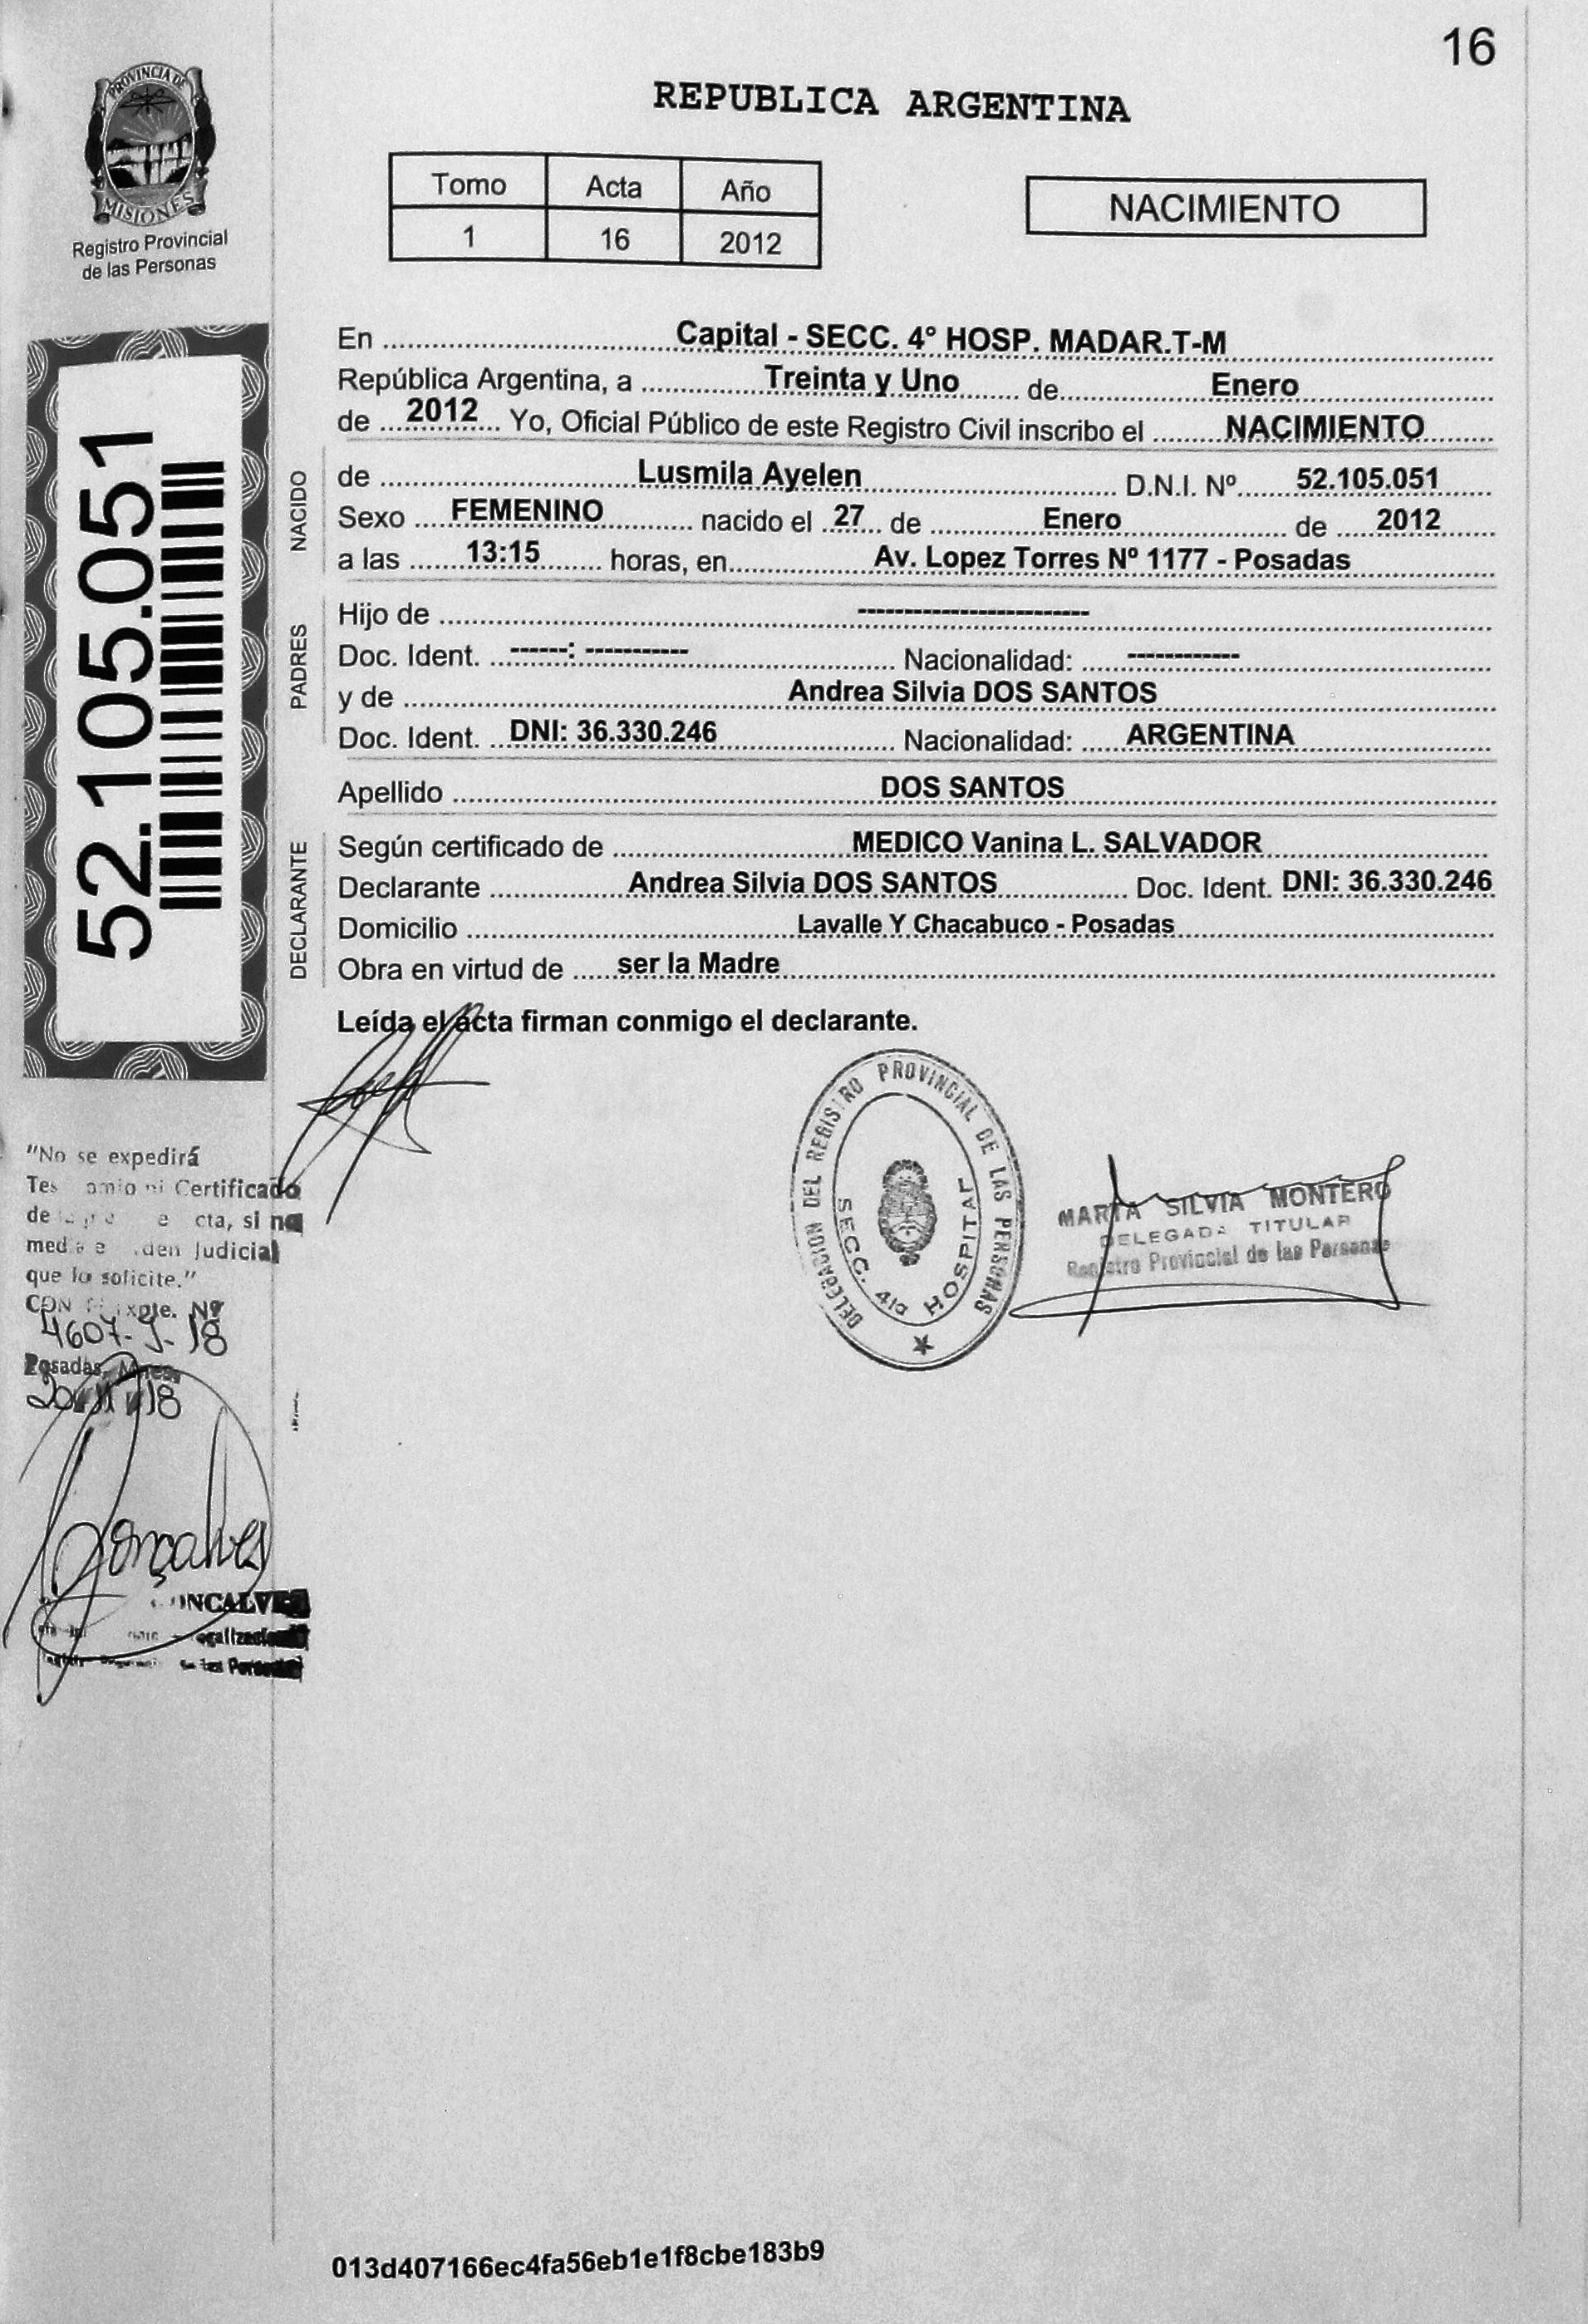 16
PROVINCIA DE
MISIONES
Registro Provincial
de las Personas
REPUBLICA ARGENTINA
Tomo Acta Año
1 16 2012
NACIMIENTO
52.105.051
En Capital - SECC. 4° HOSP. MADAR.T-M
República Argentina, a Treinta y Uno de Enero
de 2012 Yo, Oficial Público de este Registro Civil inscribo el NACIMIENTO
NACIDO
de Lusmila Ayelen D.N.I. Nº 52.105.051
Sexo FEMENINO nacido el 27 de Enero de 2012
a las 13:15 horas, en Av. Lopez Torres Nº 1177 - Posadas
PADRES
Hijo de -------------------------
Doc. Ident. ------: ----------- Nacionalidad: ------------
y de Andrea Silvia DOS SANTOS
Doc. Ident. DNI: 36.330.246 Nacionalidad: ARGENTINA
Apellido DOS SANTOS
DECLARANTE
Según certificado de MEDICO Vanina L. SALVADOR
Declarante Andrea Silvia DOS SANTOS Doc. Ident. DNI: 36.330.246
Domicilio Lavalle Y Chacabuco - Posadas
Obra en virtud de ser la Madre
Leída el acta firman conmigo el declarante.
DELEGACION DEL REGISTRO PROVINCIAL DE LAS PERSONAS
SECC. 4ta HOSPITAL
MARTA SILVIA MONTERO
DELEGADA TITULAR
Registro Provincial de las Personas
"No se expedirá
Certificado
de cta, si no
Judicial
que lo solicite."
CON Expte. Nº
4607- -18
Posadas, Mnes.
20 18
Gonçalves
GONCALVES
de las Personas
013d407166ec4fa56eb1e1f8cbe183b9